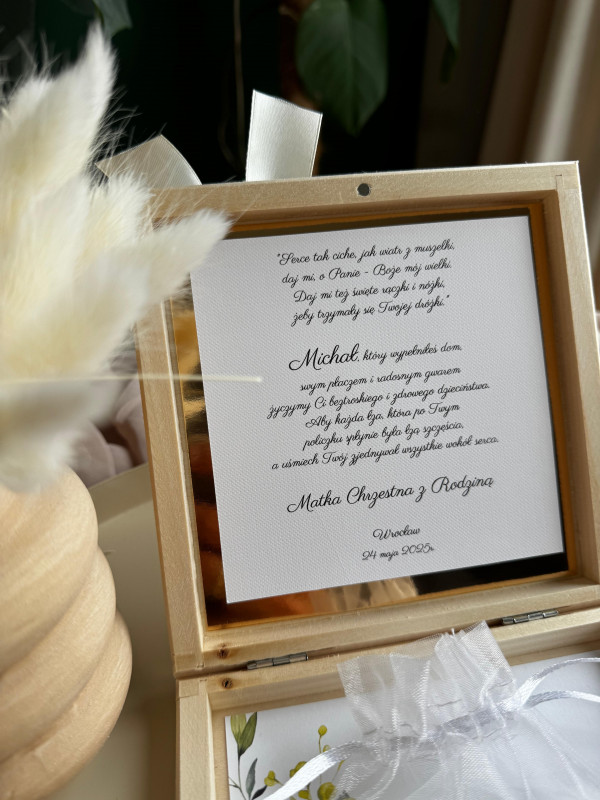 "Serce tak ciche, jak wiatr z muszelki,
daj mi, o Panie - Boże mój wielki.
Daj mi też święte rączki i nóżki,
żeby trzymały się Twojej dróżki."
Michał, który wypełniłeś dom,
swym płaczem i radosnym gwarem
życzymy Ci beztroskiego i zdrowego dzieciństwa.
Aby każda łza, która po Twym
policzku spłynie była łzą szczęścia,
a uśmiech Twój zjednywał wszystkie wokół serca.
Matka Chrzestna z Rodziną
Wrocław
24 maja 2025r.